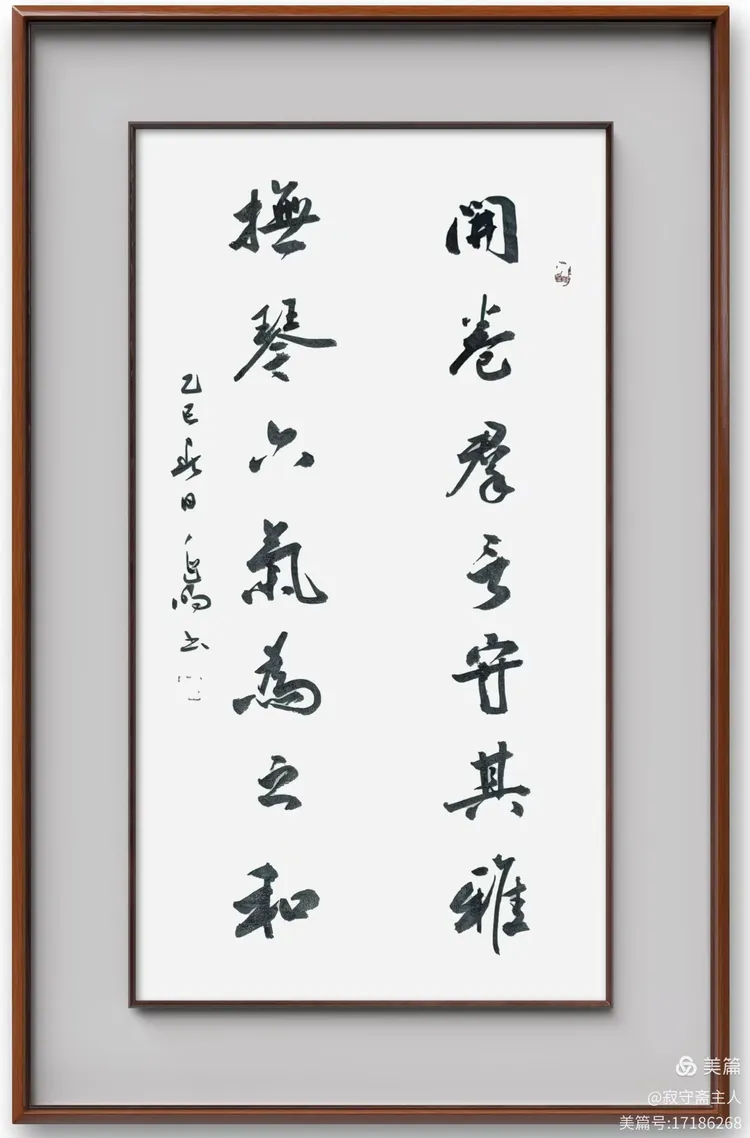 開卷群言守其雅
撫琴六氣為之和
乙巳 日 书
美篇
@寂守斋主人
美篇号:17186268